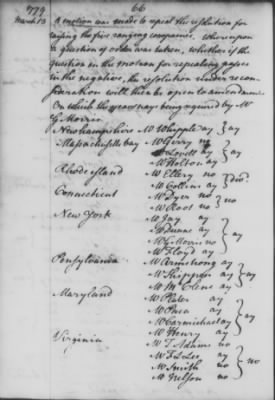 1779 66
March 13 A motion was made to repeal the resolution for
raising the five ranging companies. Whereupon
a question of order was taken, whether if the
question in the motion for repealing passes
in the negative, the resolution under recon-
sideration will then be open to amendment.
On which the yeas & nays being required by Mr
G Morris
Newhampshire Mr Whipple ay } ay
Massachusetts bay Mr Gerry ay
Mr Lovell ay } ay
Mr Holton ay
Rhode island Mr Ellery no
Mr Collins ay } divd.
Connecticut Mr Dyer no
Mr Root no } no
New York Mr Jay ay
Mr Duane ay
Mr G Morris no } ay
Mr Floyd ay
Pensylvania Mr Armstrong ay
Mr Shippen ay } ay
Mr McClene ay
Maryland Mr Plater ay
Mr Paca ay
Mr Carmichael ay } ay
Mr Henry ay
Virginia Mr T. Adams no
Mr F L Lee ay
Mr Smith no } no
Mr Nelson no